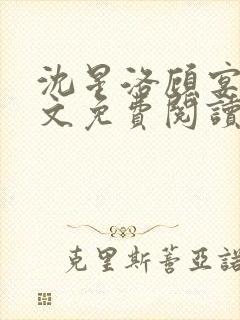 沈星洛顾宴
文免費閱讀
克里斯蒂亞諾